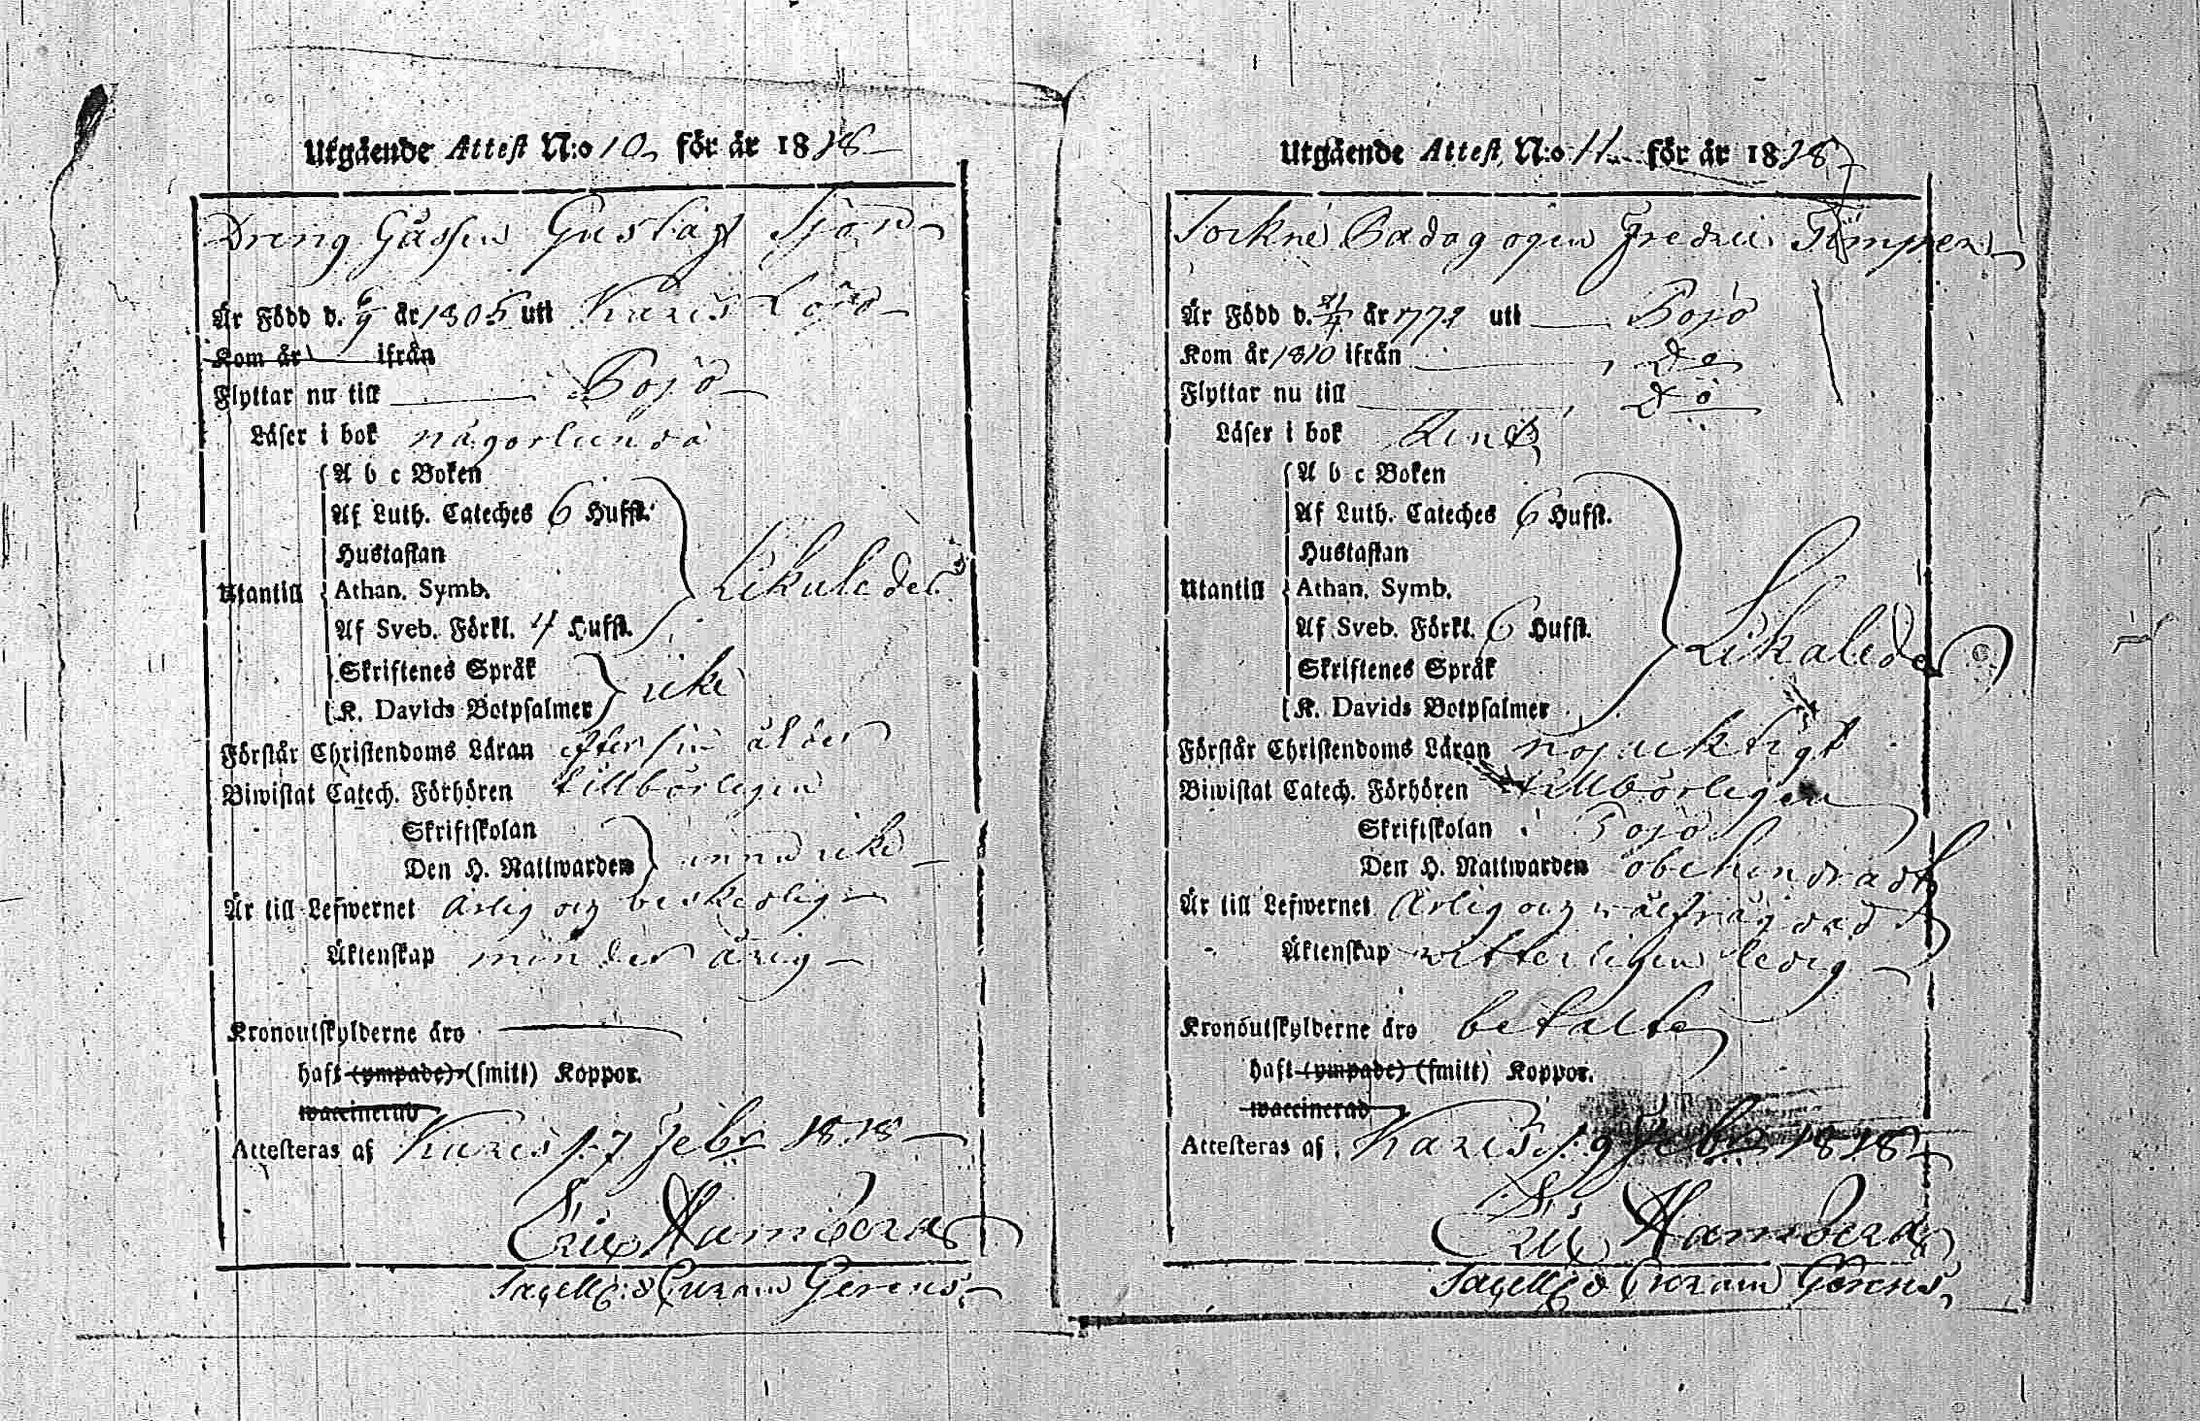 Utgående Attest N:o 10 för år 1818
Dreng Gåssen Gustaf
Är Född d. 6/9 år 1805 uti Karis
Kom år ifrån
Flyttar nu till Pojo
Läser i bok någorlunda
A b c Boken
Af Luth. Cateches 6 Hufst.
Hustaflan
Utantill Athan. Symb. Likaledes
Af Sveb. Förkl. 4 Hufst.
Skriftenes Språk
K. Davids Botpsalmer icke
Förstår Christendoms Läran efter sin ålder
Biwistat Catech. Förhören tillbörligen
Skriftskolan
Den H. Nattwarden ännu icke
Är till Lefwernet Ärlig och beskedlig
Äktenskap minderårig
Kronoutskylderne äro
haft (ympade) (smitt) Koppor.
waccinerad
Attesteras af Karis d. 7 Febr 1818
Eric Hamberg
Sacell: & Curam Gerens
Utgående Attest N:o 11 för år 1818
Sockne Pædagogen Fredric
Är Född d. 21/4 år uti Pojo
Kom år 1810 ifrån do
Flyttar nu till do
Läser i bok Rent
A b c Boken
Af Luth. Cateches 6 Hufst.
Hustaflan
Utantill Athan. Symb.
Af Sveb. Förkl. 6 Hufst. Likaledes
Skriftenes Språk
K. Davids Botpsalmer
Förstår Christendoms Läran nöjaktigt
Biwistat Catech. Förhören tillbörligen
Skriftskolan i Pojo
Den H. Nattwarden obehindradt
Är till Lefwernet Ärlig och wälfrägdad
Äktenskap witterligen ledig
Kronoutskylderne äro betalte
haft (ympade) (smitt) Koppor.
waccinerad
Attesteras af Karis d. 9 Febr 1818
Eric Hamberg
Sacell: & Curam Gerens